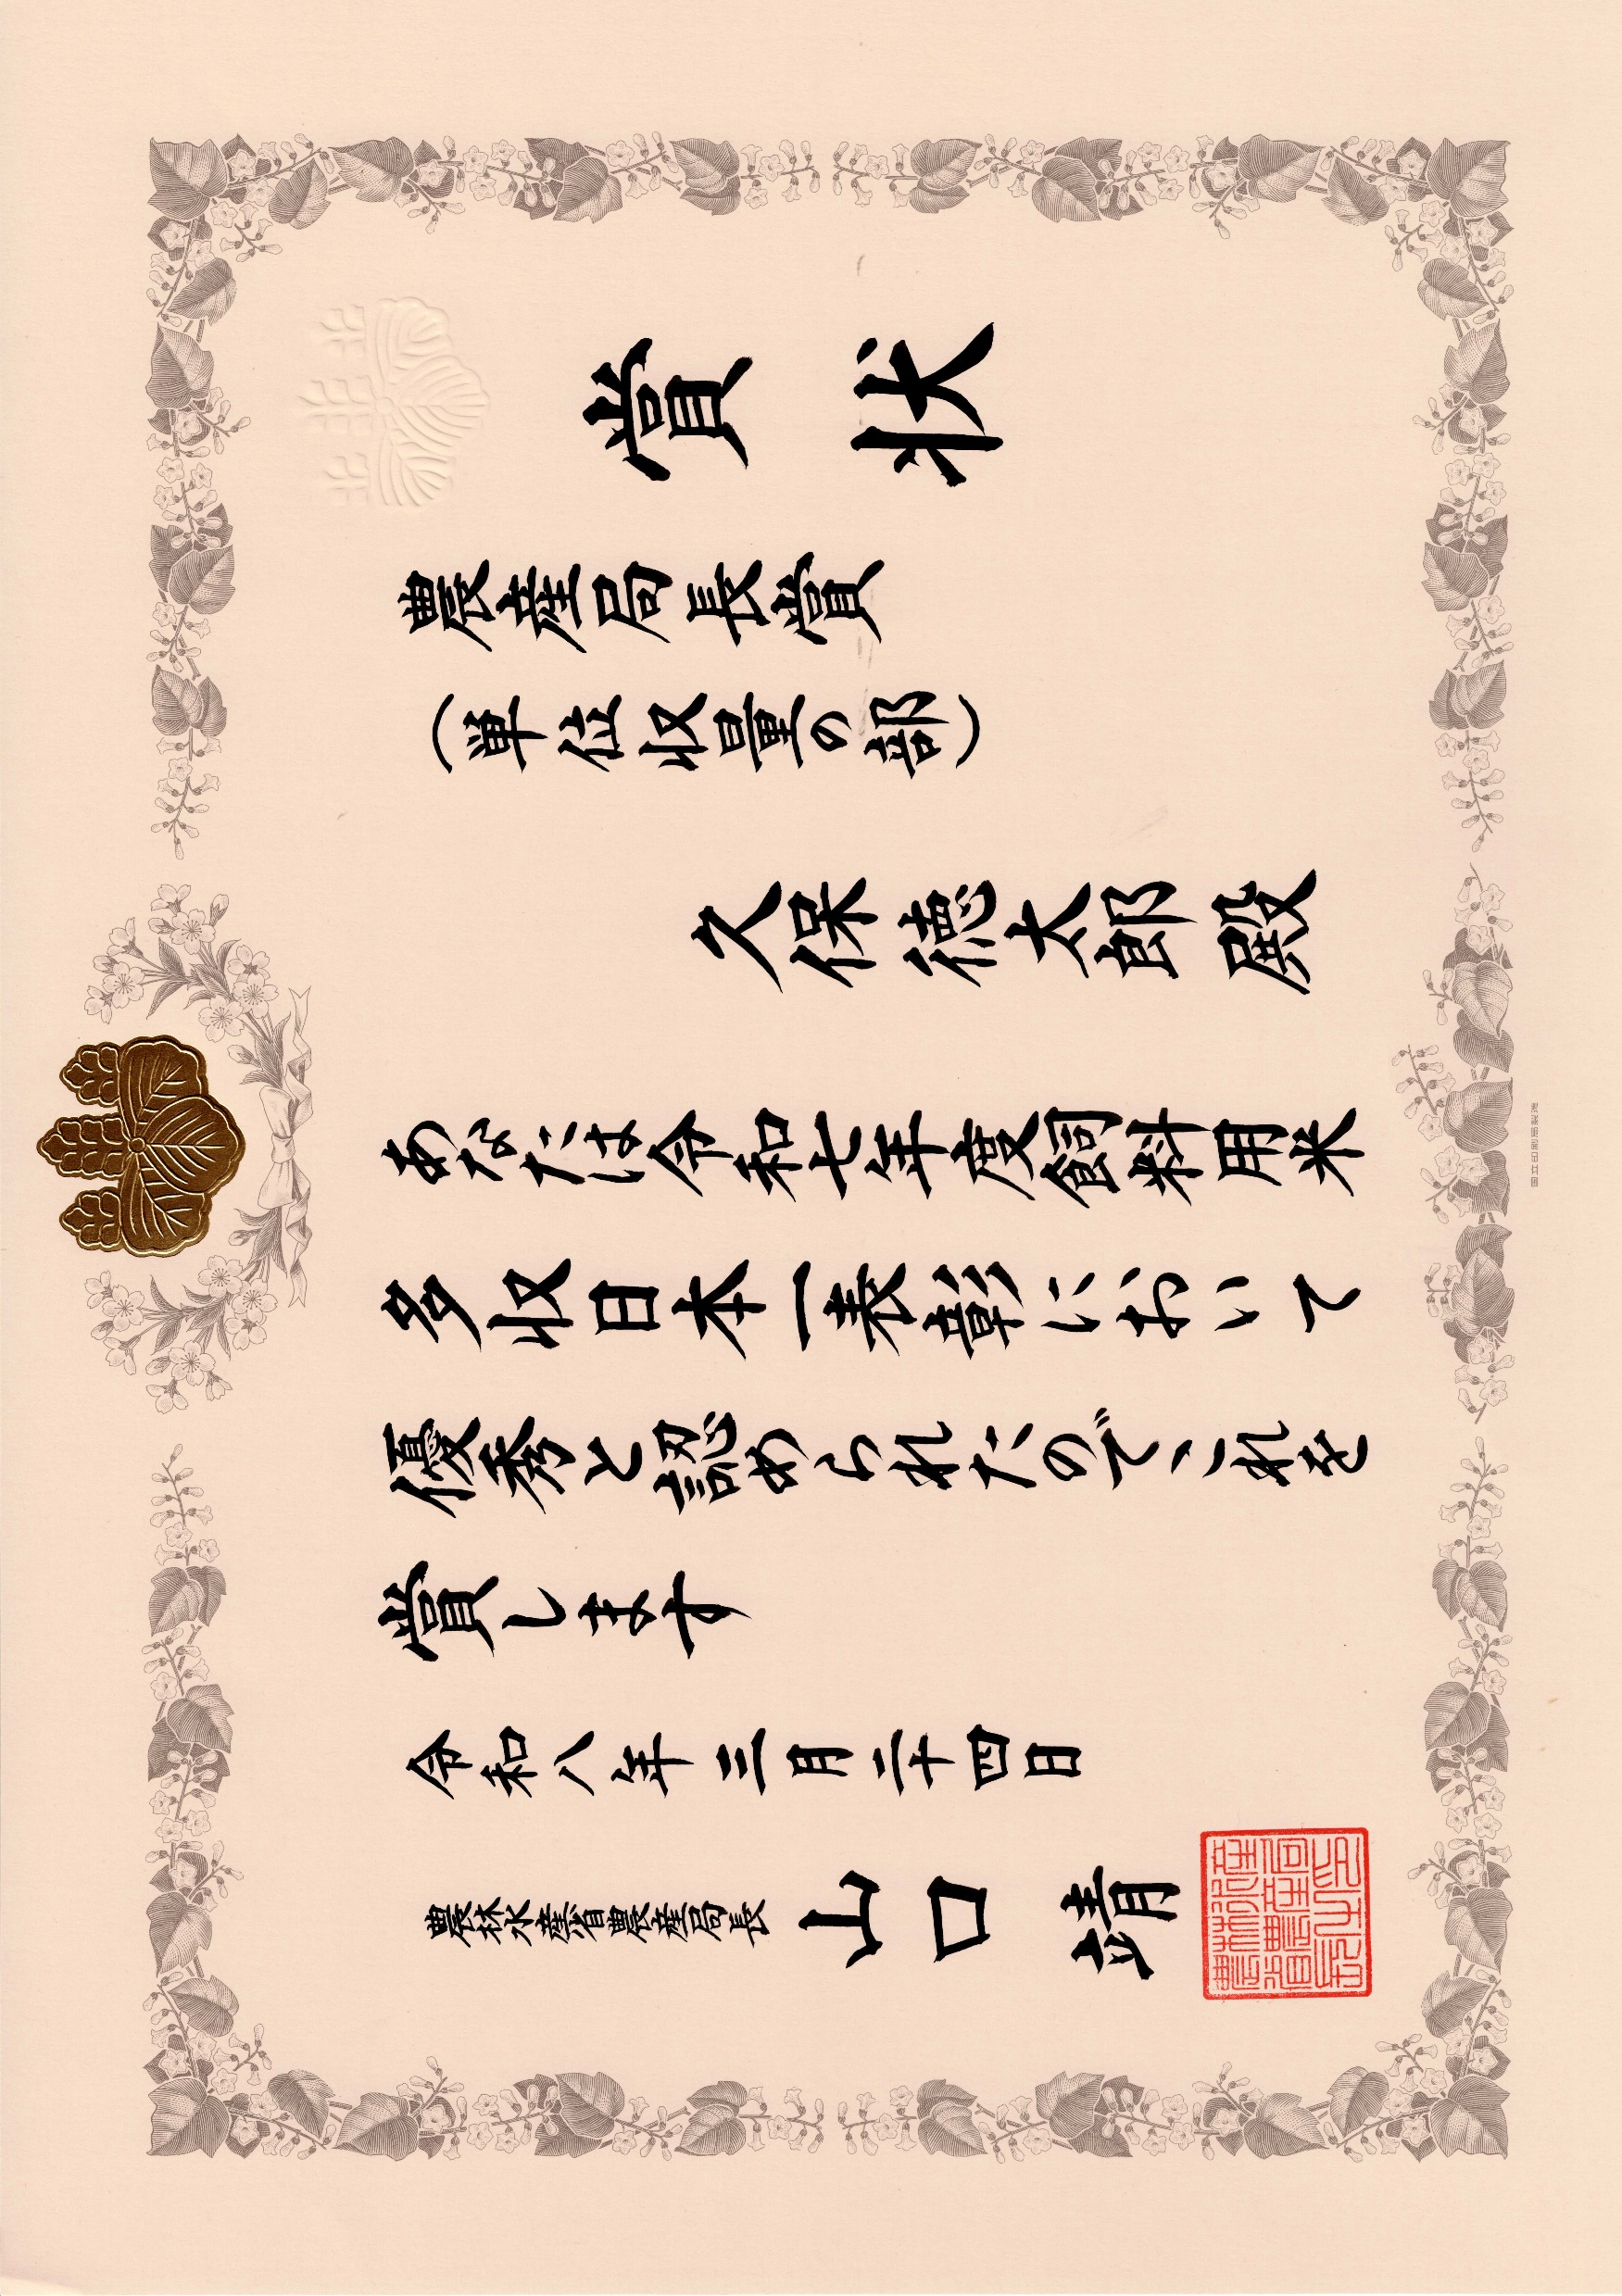 賞状
農産局長賞
（単位収量の部）
久保徳太郎殿
あなたは令和七年度飼料用米
多収日本一表彰において
優秀と認められたのでこれを
賞します
令和八年三月二十四日
農林水産省農産局長 山口靖